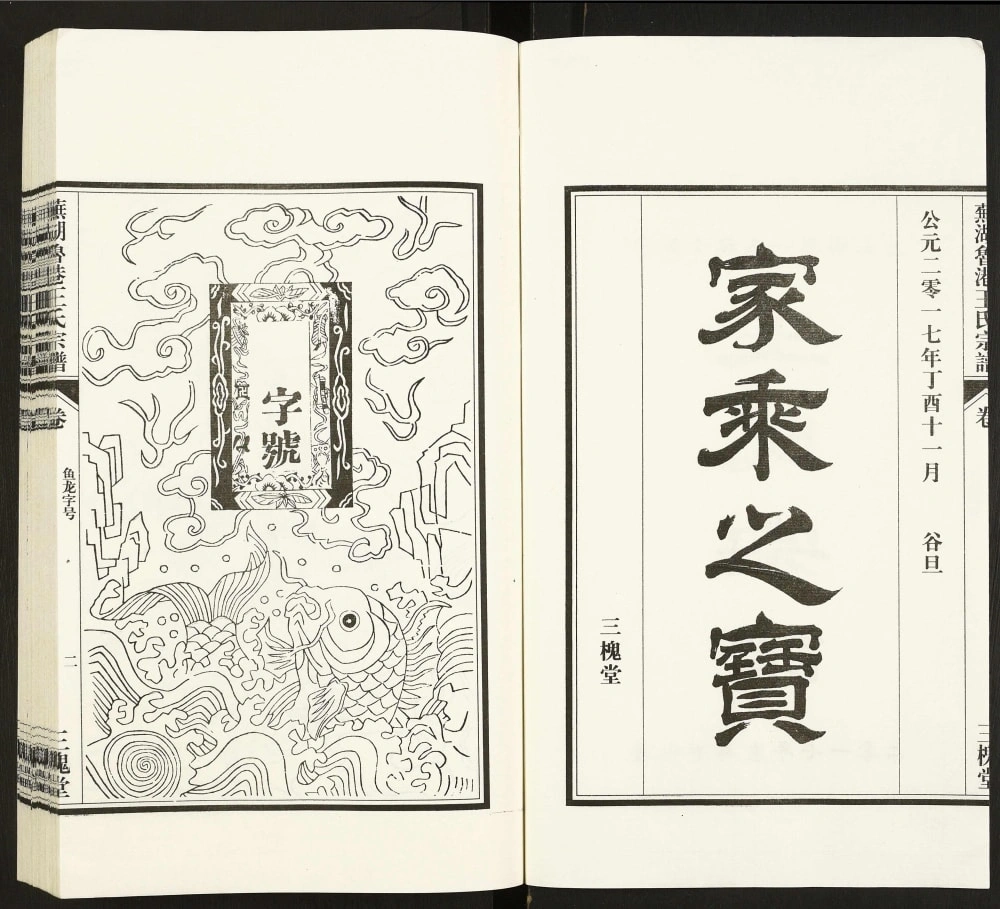 蕪湖魯港王氏宗譜
卷
三槐堂
公元二零一七年丁酉十一月 谷旦
家乘之寶
三槐堂
字號
蕪湖魯港王氏宗譜
卷
鱼龙字号
二
三槐堂